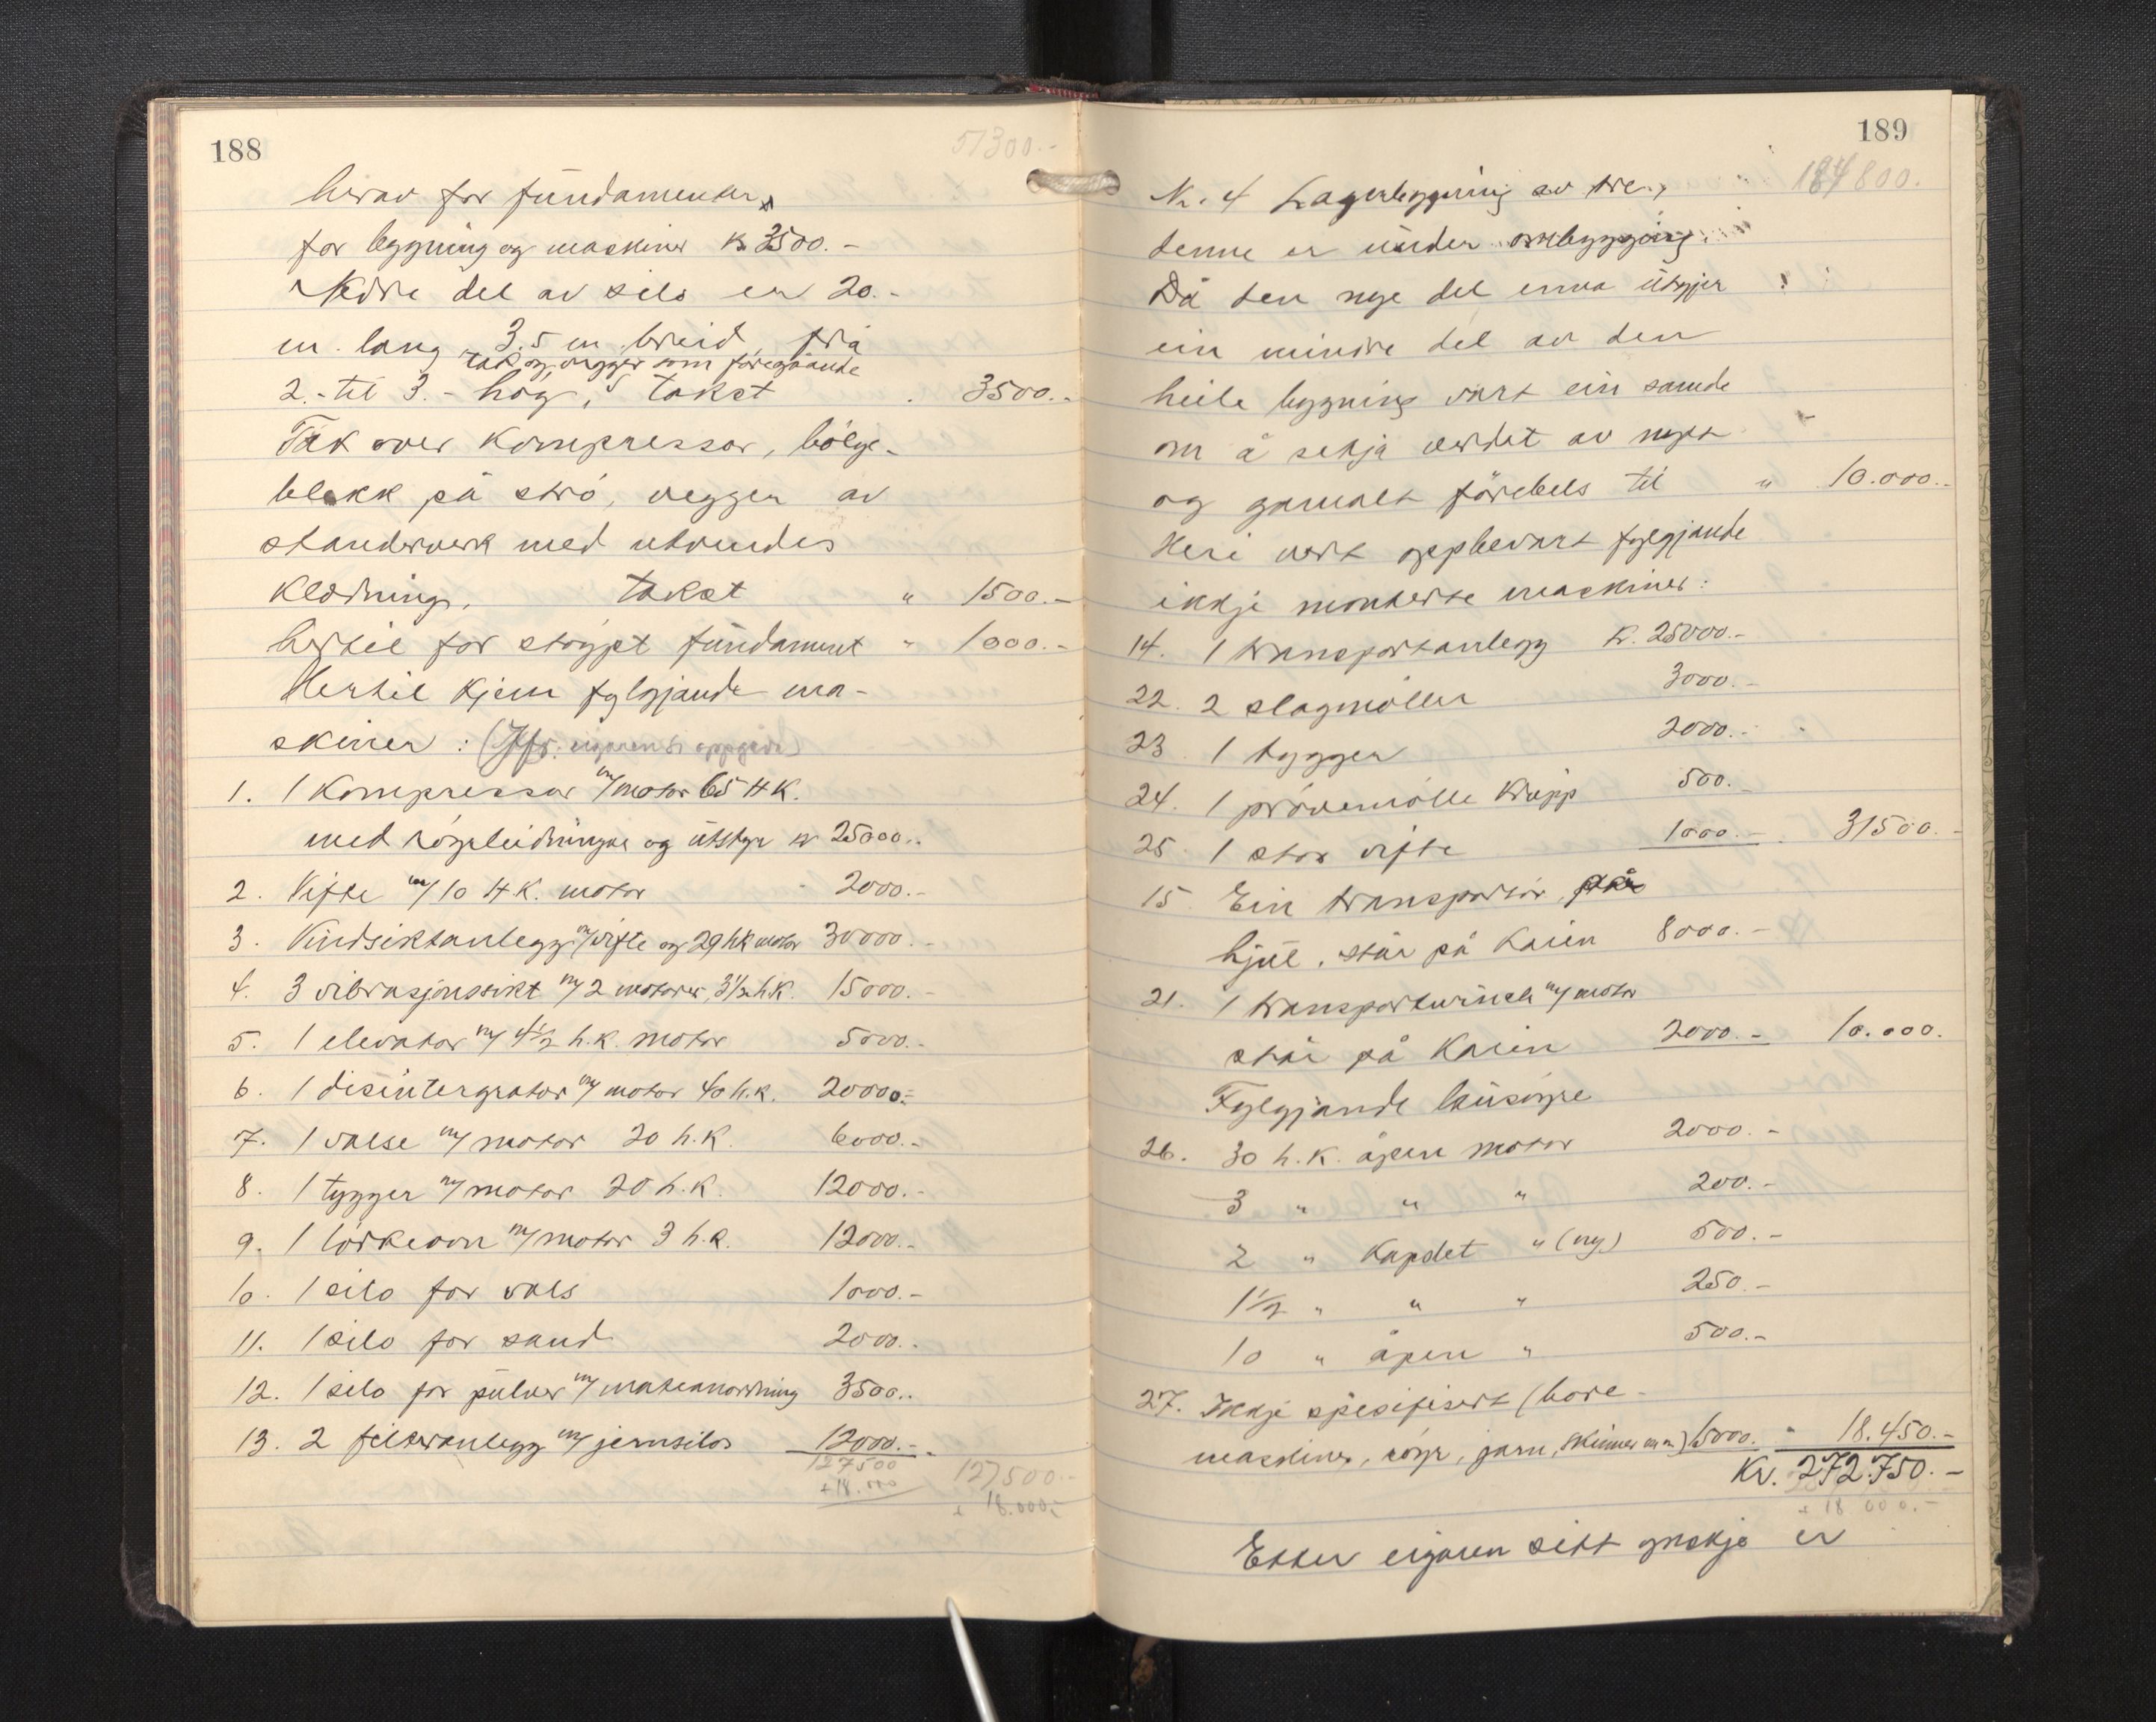 188
51300.-
herav for fundamenter
for bygning og maskiner kr 3500.-
Nedre del av silo er 20.-
m. lang 3,5 m. breid, frå
tak og vegger som föregåande
2.- til 3.- høg, takst 3500.-
Tak over kompressor, bölge-
blekk på strö, vegger av
standerverk med utvendes
kledning, takst " 1500.-
hertil for støypt fundament " 1000.-
Hertil kjem fylgjande ma-
skiner : (Jfr. eigarens oppgave)
1. 1 Kompressor m/motor 65 HK.
med røyrleidningar og utstyr kr 25000..
2. Vifte m/ 10 H.K. motor - 2000.-
3. Vindsiktanlegg m/vifte og 29 hk motor 30000.-
4. 3 vibrasjonssikt m/ 2 motorer, 3½ h.k. 15000.-
5. 1 elevator m/ 4½ h.k. motor 5000.-
6. 1 disintergrator m/ motor 40 h.k. 20000.-
7. 1 valse m/ motor 20 h.k. 6000.-
8. 1 tygger m/ motor 20 h.k. 12000.-
9. 1 törkeovn m/ motor 3 h.k. 12000.-
10. 1 silo for vals 1000.-
11. 1 silo for sand 2000..
12. 1 silo for pulver m/ mateanordning 3500..
13. 2 filteranlegg m/ jernsilos 12000.-
127500 127500.-
+18.000 + 18.000.-
189
184800.
Nr. 4 Lagerbygning av tre,
denne er under ombygging.
Då den nye del enna utgjer
ein mindre del av den
heile bygning vart ein samde
om å setja verdet av nytt
og gamalt förebels til " 10.000.-
Heri vert oppbevart fylgjande
ikkje monterte maskiner:
14. 1 transportanlegg kr. 25000.-
22. 2 slagmöller 3000.-
23. 1 tygger 2000.-
24. 1 prövemölle Krupp 500.-
25. 1 stor vifte 1000.- 31500.-
15. Ein transportör, på
hjul, står på Kaien 8000.-
21. 1 transportwinch m/ motor
står på Kaien 2000.- 10.000.
Fylgjande lausöyre
26. 30 h.k. åpen motor 2000.-
3 " " " 200.-
2 " Kapslet " (ny) 500.-
1½ " " " 250.-
10 " åpen " 500.-
27. Ikkje spesifisert (bore-
maskiner, röyr, jarn, skinner m.m.) 15000. " 18.450.-
Kr. 272.750.-
+ 18 000.-
Etter eigaren sitt ynskje er